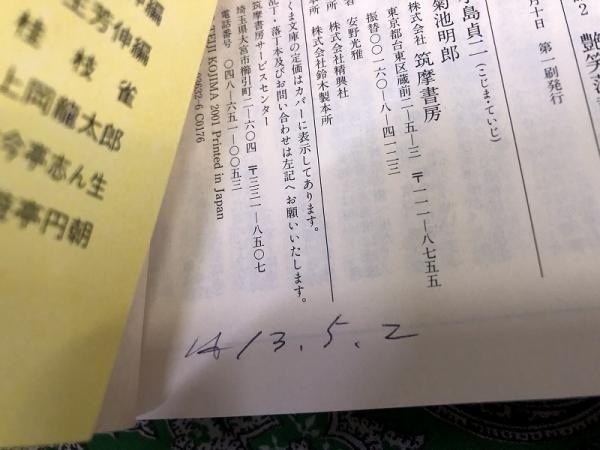 2 艶笑
月十日 第一刷発行
小島貞二（こじま・ていじ）
菊池明郎
株式会社 筑摩書房
東京都台東区蔵前二―五―三 〒一一一―八七五五
振替〇〇一六〇―八―四一二三
安野光雅
株式会社精興社
株式会社鈴木製本所
くま文庫の定価はカバーに表示してあります。
乱丁・落丁本及びお問い合わせは左記へお願いいたします。
筑摩書房サービスセンター
埼玉県大宮市櫛引町二―六〇四 〒三三一―八五〇七
電話番号 〇四八―六五一―〇〇五三
TEIJI KOJIMA 2001 Printed in Japan
C0176
13.5.2
芳伸編
芳伸編
桂枝雀
上岡龍太郎
今亭志ん生
亭円朝